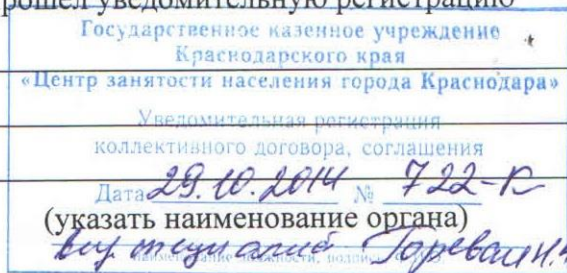 прошел уведомительную регистрацию
Государственное казенное учреждение
Краснодарского края
«Центр занятости населения города Краснодара»
Уведомительная регистрация
коллективного договора, соглашения
Дата 29.10.2014 № 722-К
(указать наименование органа)